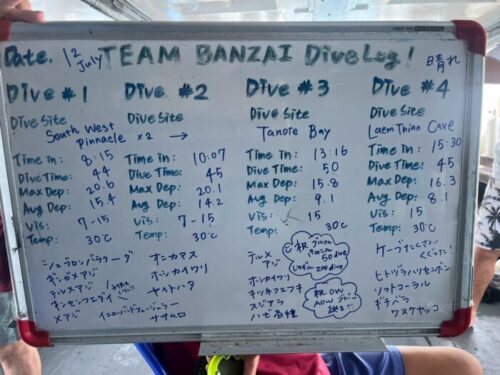 Date. 12 July TEAM BANZAI Dive Log! 晴れ
Dive #1
Dive Site
South West Pinnacle ×2 →
Time in: 8:15
Dive Time: 44
Max Dep: 20.6
Avg Dep: 15.4
Vis: 7-15
Temp: 30℃
シェブロンバラクーダ
ギンガメアジ
テルメアジ
キンセンフエダイ
メアジ
Dive #2
Time in: 10:07
Dive Time: 45
Max Dep: 20.1
Avg Dep: 14.2
Vis: 7-15
Temp: 30℃
オニカマス
オニカイワリ
ヤイトハタ
イエローバンドフュージラー
ササムロ
Dive #3
Dive Site
Tanote Bay
Time in: 13:16
Dive Time: 50
Max Dep: 15.8
Avg Dep: 9.1
Vis: 15
Temp: 30℃
テルメアジ
オニカイワリ
キツネフエフキ
スジアラ
ハゼ各種
祝
50 dive
200 dive
祝 OW
Dive #4
Dive Site
Laem Thian Cave
Time in: 15:30
Dive Time: 45
Max Dep: 16.3
Avg Dep: 8.1
Vis: 15
Temp: 30℃
ケーブたくさん
くぐった!
ヒトヅラハリセンボン
ソフトコーラル
ギチベラ
ワヌケヤッコ